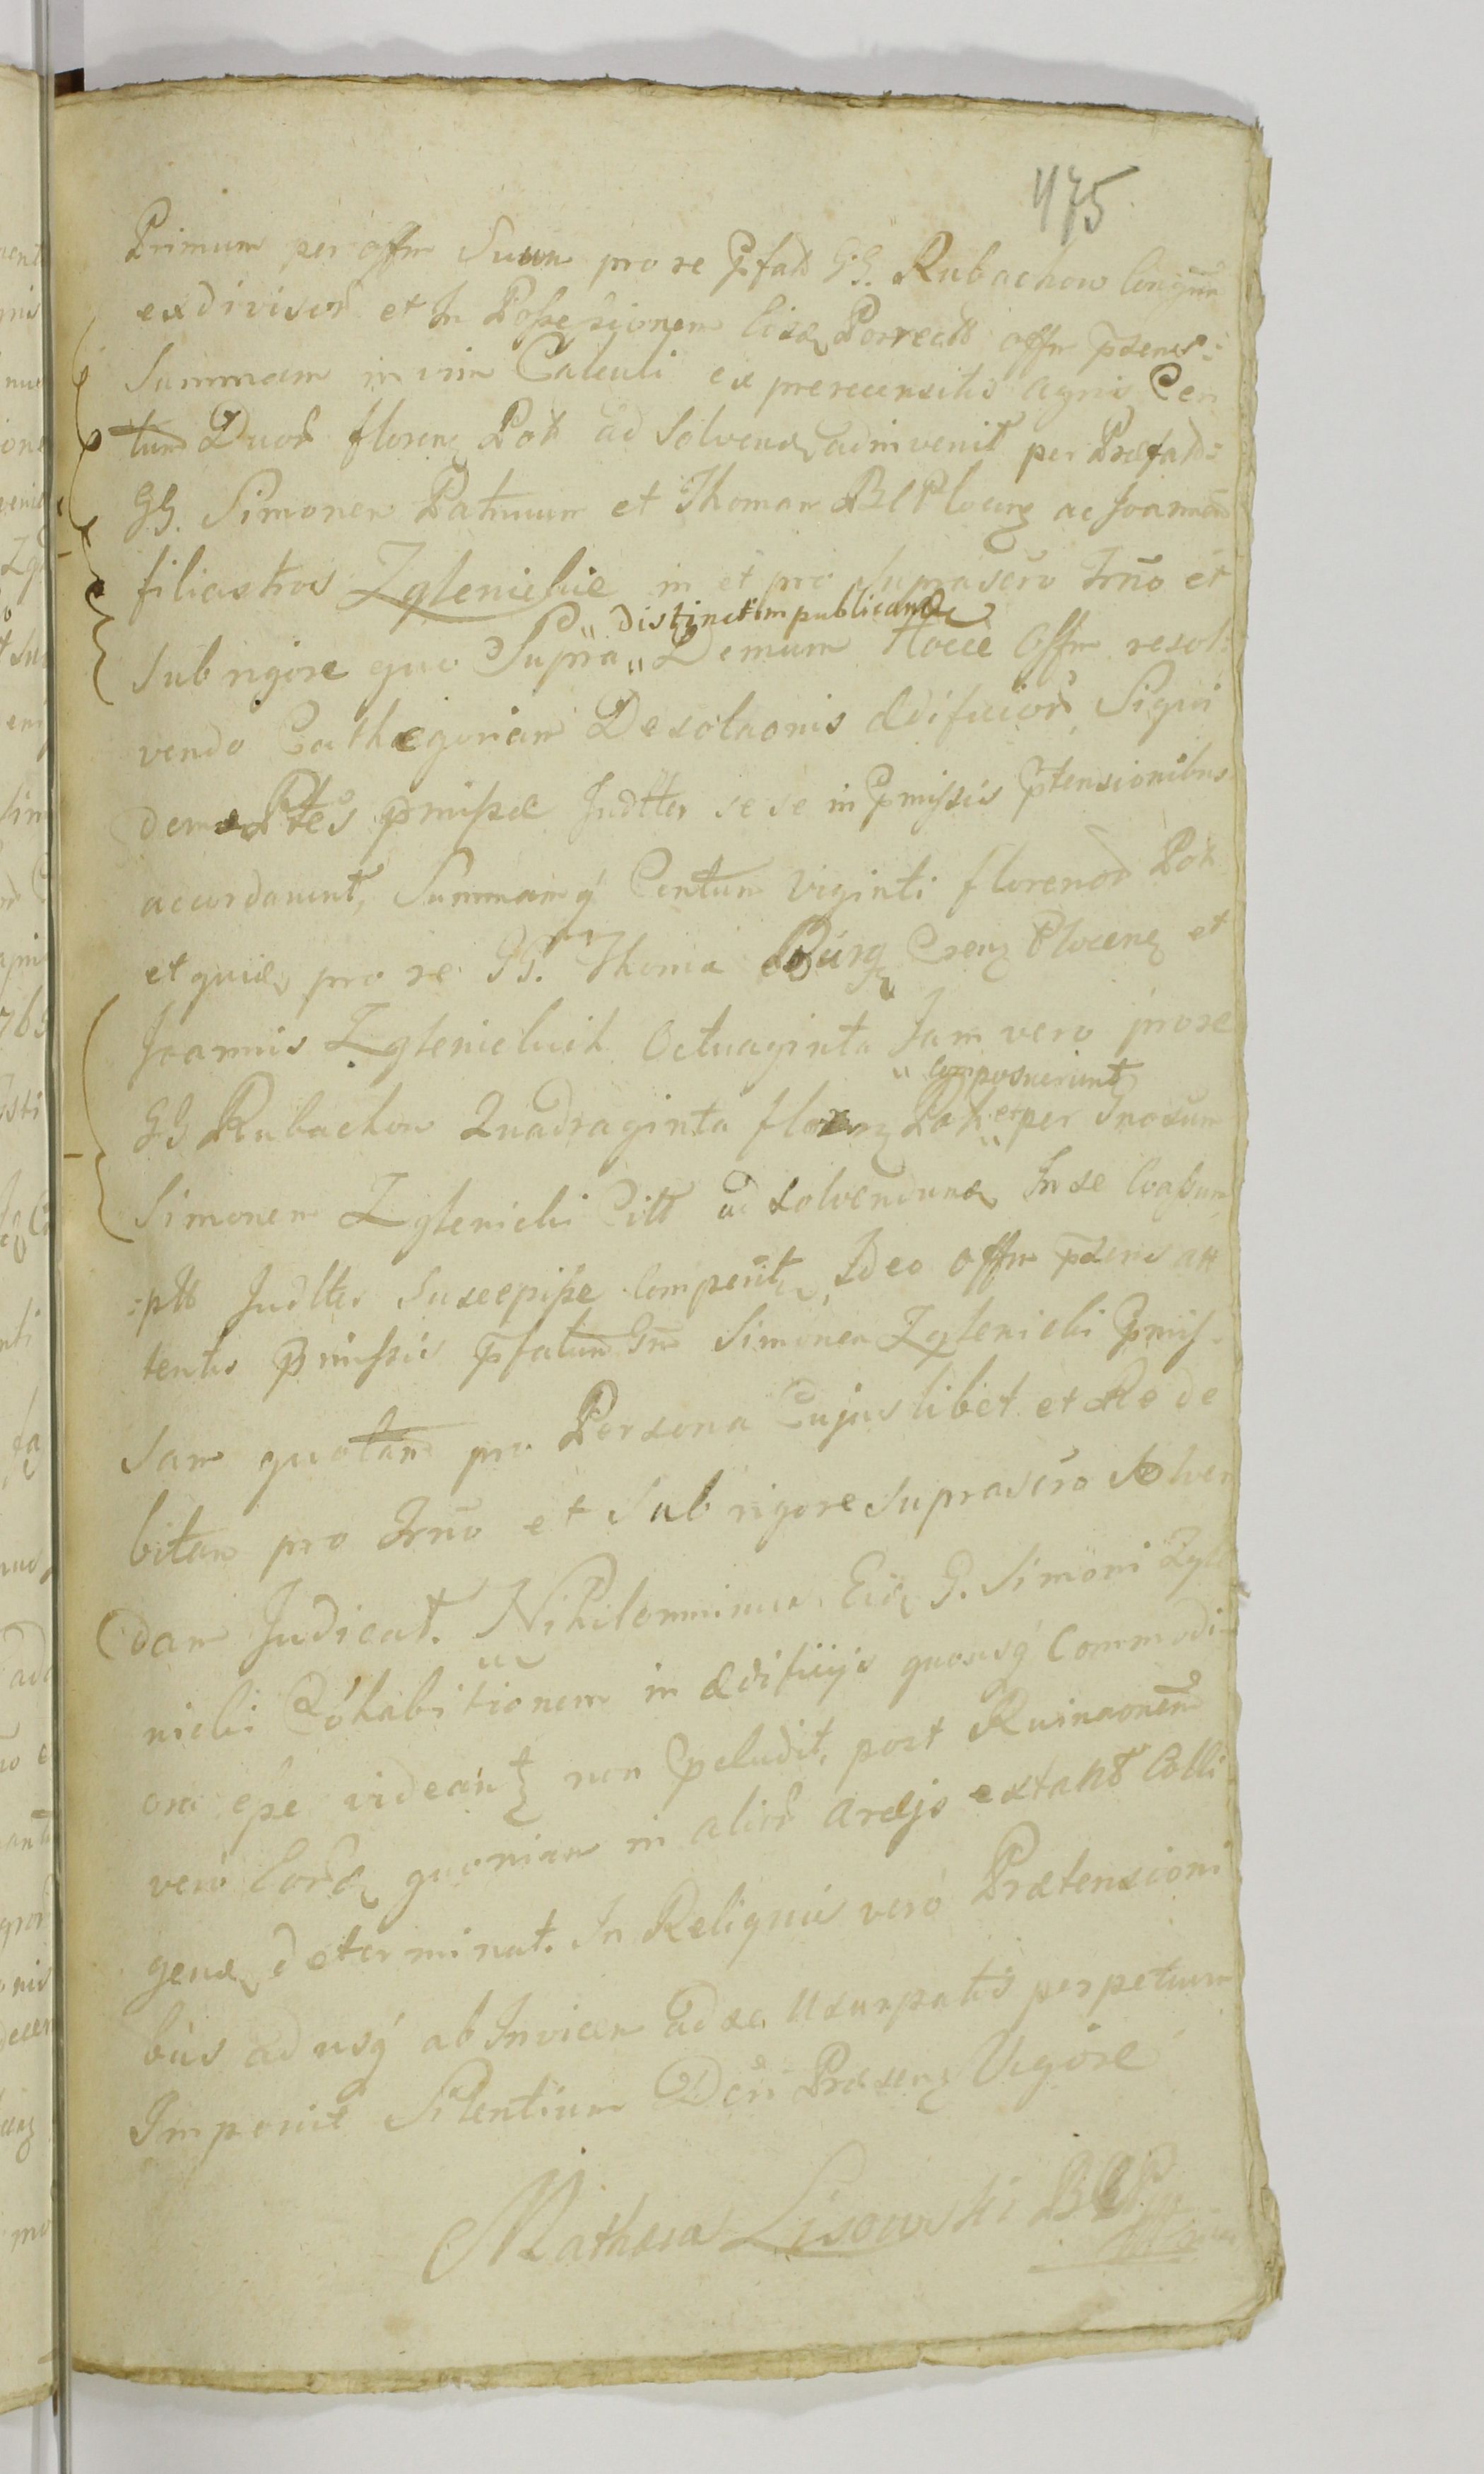 475
Primum per offm Suum pro re Pfatt GG. Rubachow
exdivisor et In Possessionem Porrectt offm
Summam in vim Calculi ex prerecensitis agris Cen
tum Duor floren Pol ad Solvend adinvenit per Præfatt:
GG. Simonem Patruum et Thomam ac Joannem
filiastros Zglenickie in et pro Suprascro Trno et
"distinctim publicand
Sub rigore quo Supra " Demum Hocce Offm resol:
vendo Cathegoriam Desolaonis Ædificior, Siqui
dem Ptes pmissæ Judtter sese in Pmissis Ptensionibus
accordarunt, Summamq Centum Viginti florenor Pol
et quid pro re GG. Thoma Burg Plocen et
Joannis Zglenickich Octuaginta Jam vero prore
" composuerunt
GG Rubachow Quadraginta floren Pol et " per Gnosum
Simonem Zglenicki Citt ad solvendum In se
:ptt Judtter Suscepisse comperit, Ideo Offm psens att
tentis Pmissis pfatum Gm Simonem Zglenicki Pmis
sam quotam pro Persona Cujuslibet et Re de
bitam pro Trno et Sub rigore suprascro Solven
dam Judicat. Nihilomminus G. Simoni Zgle
nicki Cohabitionem in Ædificijs quousq Commodi
ora esse videant non Pcludit, post Ruinaonem
vero quoniam in alior Aræjs extant Colli
gend determinat. In Reliquis vero Prætensioni
bus adusq ab Invicem ad se Usurpatis perpetuum
Imponit Silentium Dcri Præsen Vigore
Mathæus Lisowski